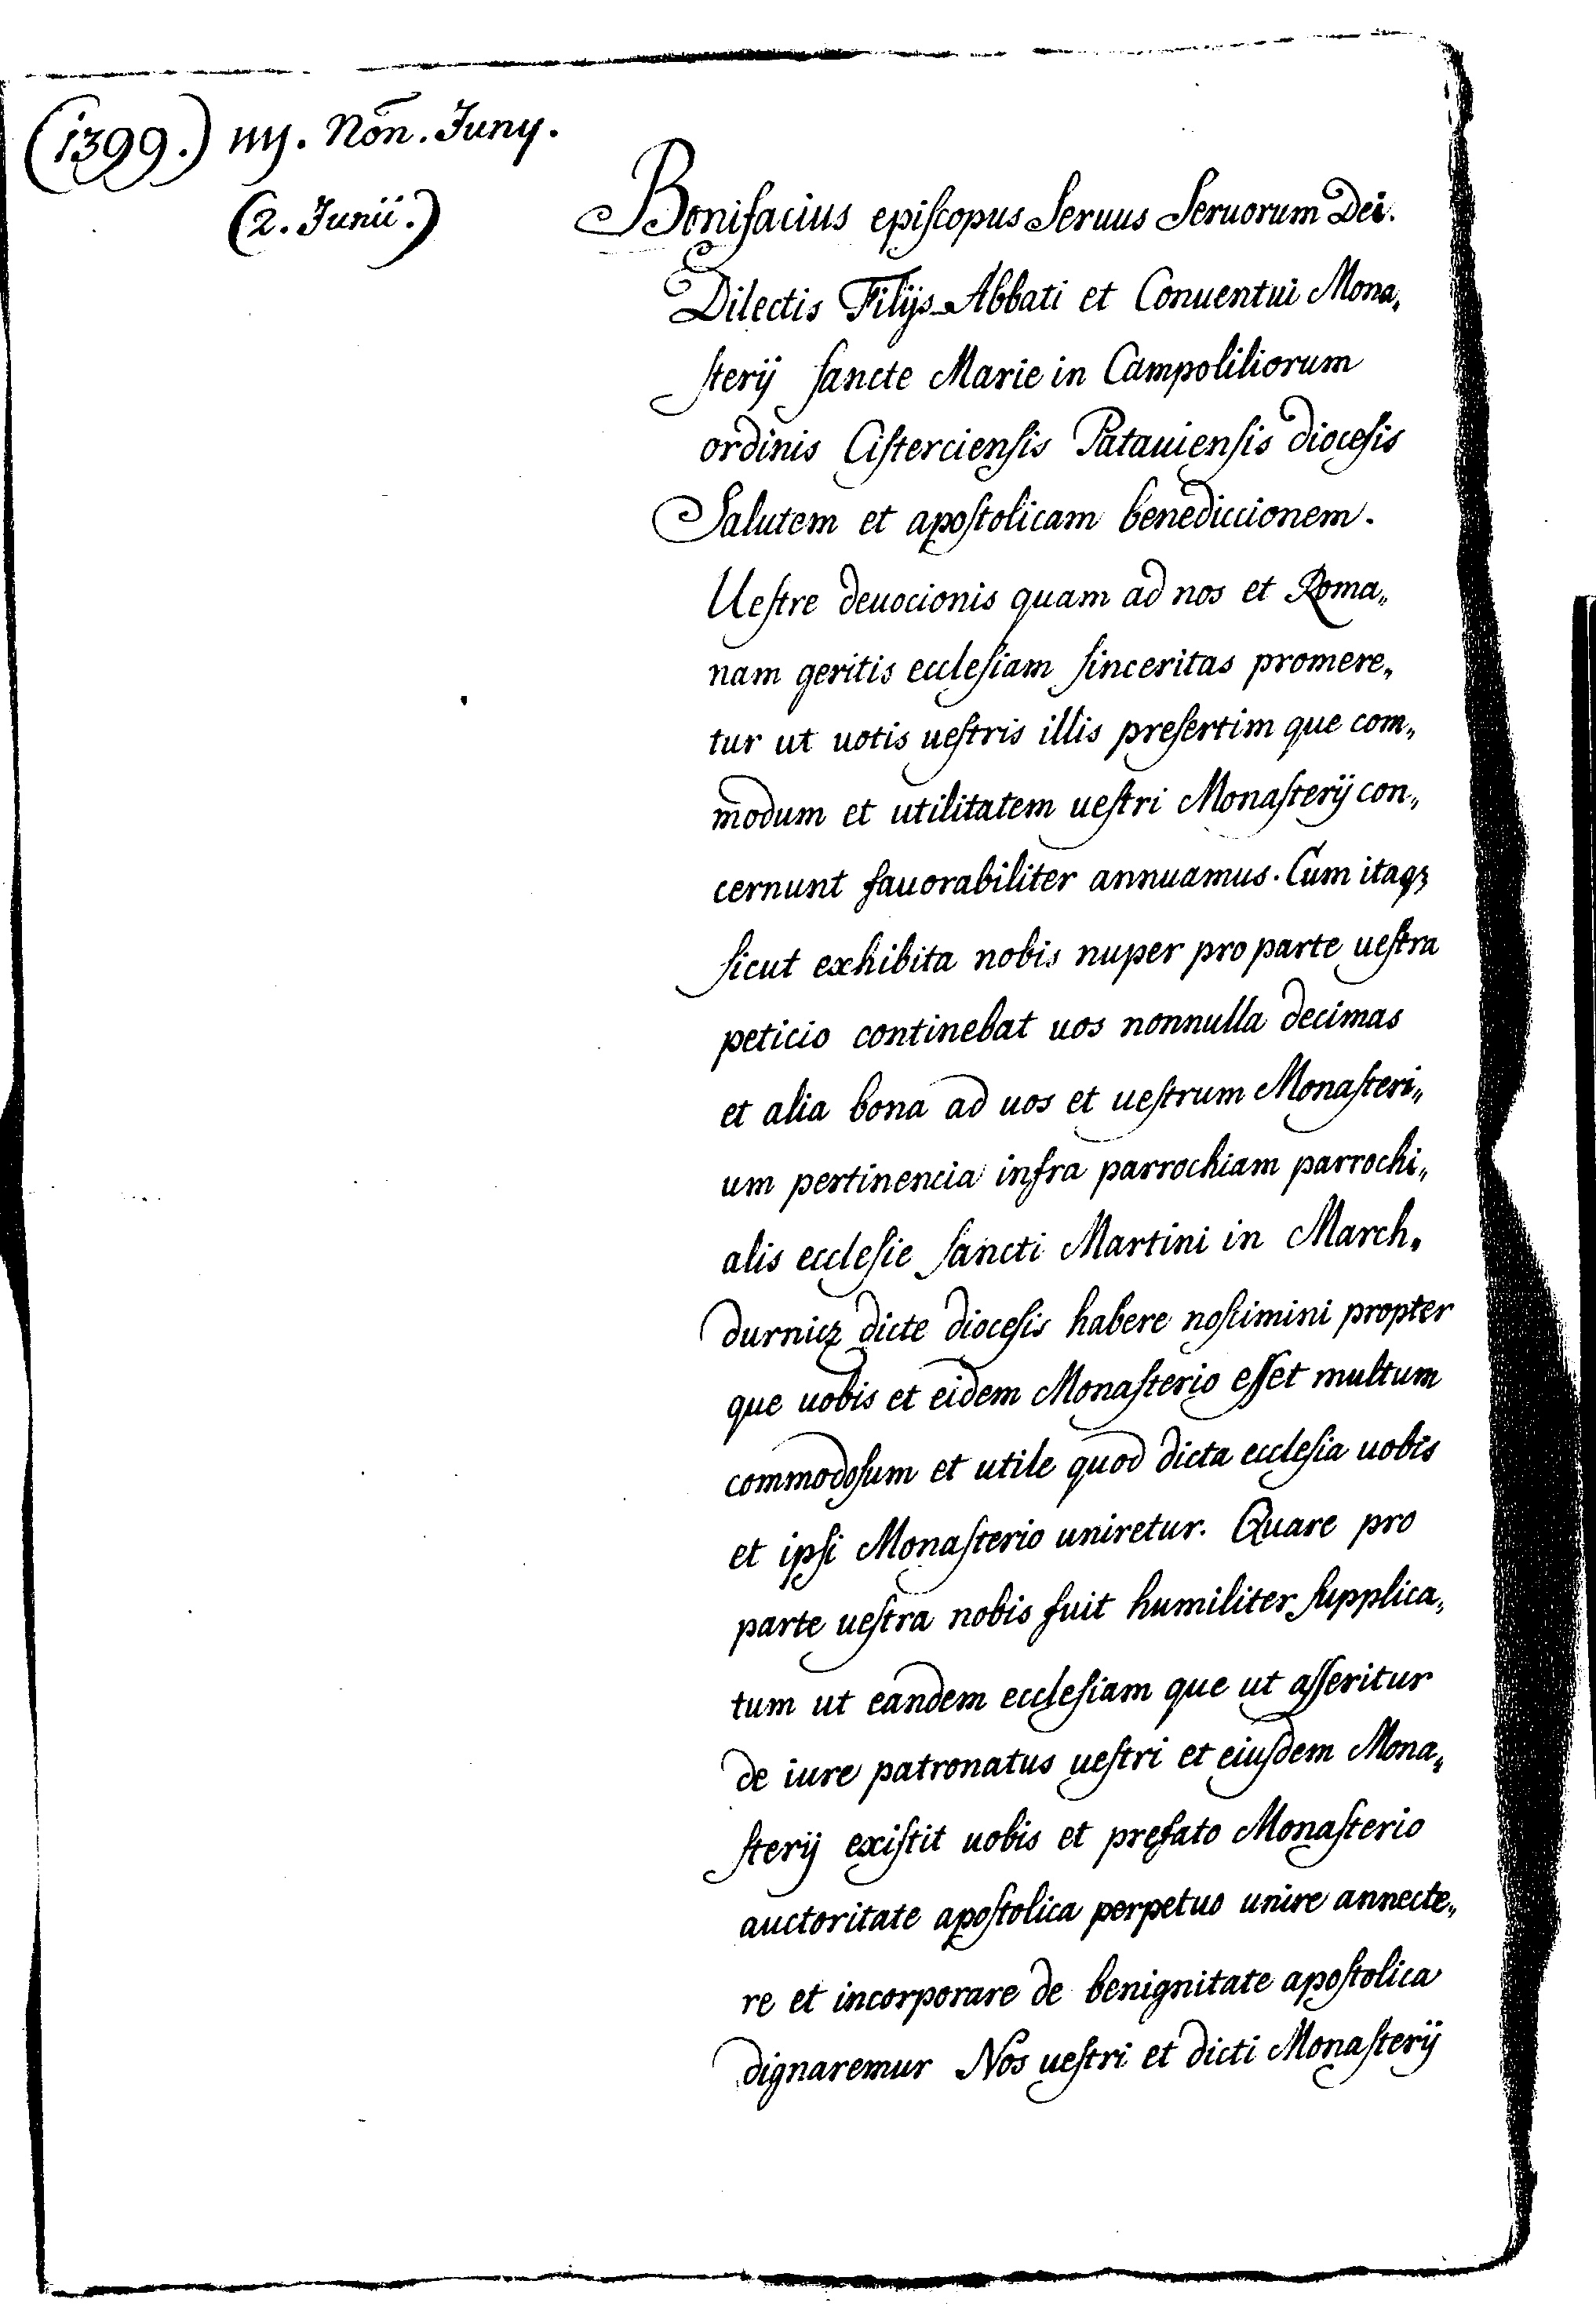 (1399.) iiij. Nōn. Juny.
(2. Junii.)
Bonifacius epiſcopus Seruus Seruorum Dei.
Dilectis Filijs Abbati et Conuentui Mona„
ſterij ſancte Marie in Campoliliorum
ordinis Ciſtercienſis Patauienſis dioceſis
Salutem et apoſtolicam benediccionem.
Ueſtre deuocionis quam ad nos et Roma„
nam geritis eccleſiam ſinceritas promere„
tur ut uotis ueſtris illis preſertim que com„
modum et utilitatem ueſtri Monaſterij con„
cernunt fauorabiliter annuamus. Cum itaqꝫ
ſicut exhibita nobis nuper pro parte ueſtra
peticio continebat uos nonnulla decimas
et alia bona ad uos et ueſtrum Monaſteri„
um pertinencia infra parrochiam parrochi„
alis eccleſie ſancti Martini in March„
durnicz dicte dioceſis habere noſcimini propter
que uobis et eidem Monaſterio eſſet multum
commodoſum et utile quod dicta eccleſia uobis
et ipſi Monaſterio uniretur. Quare pro
parte ueſtra nobis fuit humiliter ſupplica„
tum ut eandem eccleſiam que ut aſſeritur
de iure patronatus ueſtri et eiuſdem Mona„
ſterij exiſtit uobis et prefato Monaſterio
auctoritate apoſtolica perpetuo unire annecte„
re et incorporare de benignitate apoſtolica
dignaremur Nos ueſtri et dicti Monaſterij